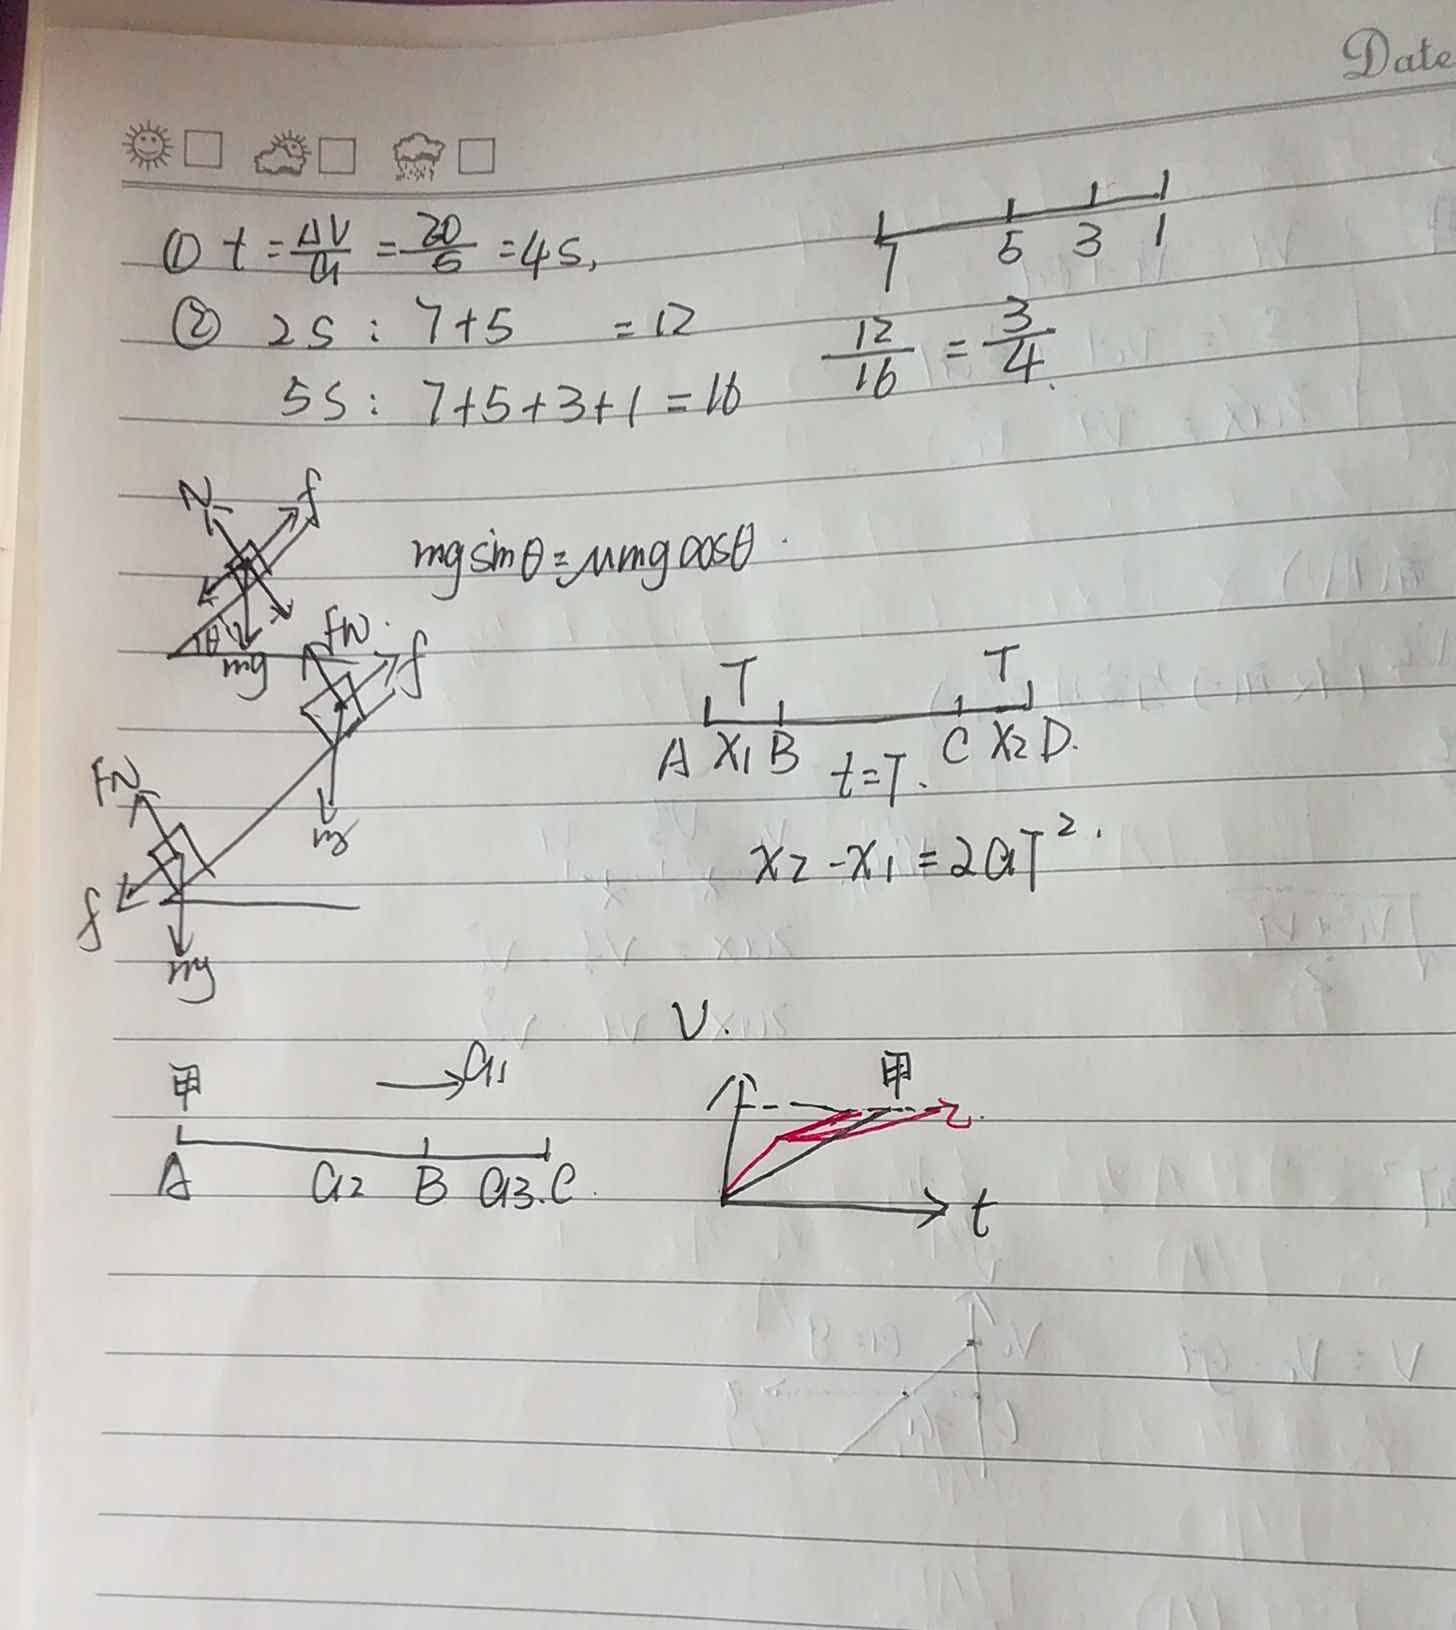 Date
① t = ΔV/a = 20/5 = 4s,
7 5 3 1
② 2s : 7+5 = 12
5s : 7+5+3+1 = 16
12/16 = 3/4.
N f
mgsinθ = μmgcosθ.
θ mg
FN. f
mg
T T
A X1 B C X2 D.
t=T.
FN
f
mg
X2 - X1 = 2aT².
V.
甲 → a1
A a2 B a3. C.
甲
乙.
t